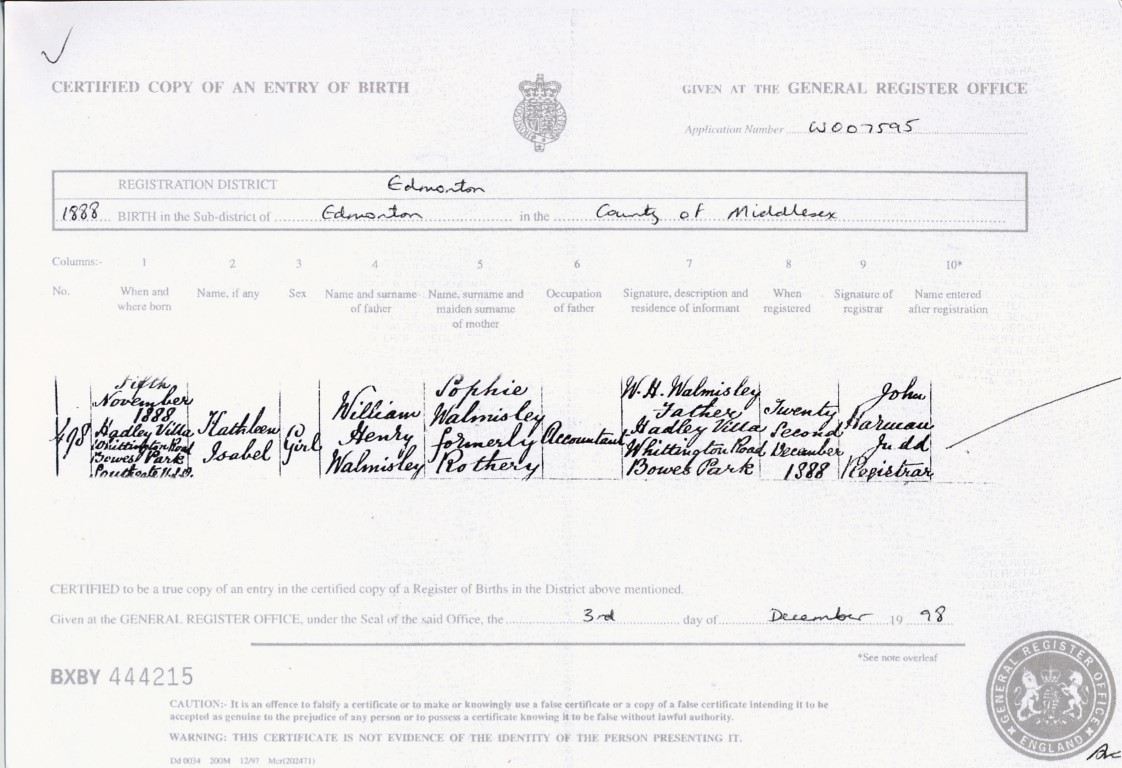 CERTIFIED COPY OF AN ENTRY OF BIRTH
GIVEN AT THE GENERAL REGISTER OFFICE
Application Number W007595
REGISTRATION DISTRICT Edmonton
1888 BIRTH in the Sub-district of Edmonton in the County of Middlesex
Columns:- 1 2 3 4 5 6 7 8 9 10*
No.
When and
where born
Name, if any
Sex
Name and surname
of father
Name, surname and
maiden surname
of mother
Occupation
of father
Signature, description and
residence of informant
When
registered
Signature of
registrar
Name entered
after registration
498
Fifth
November
1888
Hadley Villa
Whittington Road
Bowes Park
Southgate U.S.D.
Kathleen
Isabel
Girl
William
Henry
Walmisley
Sophie
Walmisley
formerly
Rothery
Accountant
W. H. Walmisley
Father
Hadley Villa
Whittington Road
Bowes Park
Twenty
Second
December
1888
John
Harman
Judd
Registrar
CERTIFIED to be a true copy of an entry in the certified copy of a Register of Births in the District above mentioned.
Given at the GENERAL REGISTER OFFICE, under the Seal of the said Office, the 3rd day of December 19 98
*See note overleaf
BXBY 444215
CAUTION:- It is an offence to falsify a certificate or to make or knowingly use a false certificate or a copy of a false certificate intending it to be
accepted as genuine to the prejudice of any person or to possess a certificate knowing it to be false without lawful authority.
WARNING: THIS CERTIFICATE IS NOT EVIDENCE OF THE IDENTITY OF THE PERSON PRESENTING IT.
Dd 0034 200M 12/97 Mcr(202471)
GENERAL REGISTER OFFICE
ENGLAND